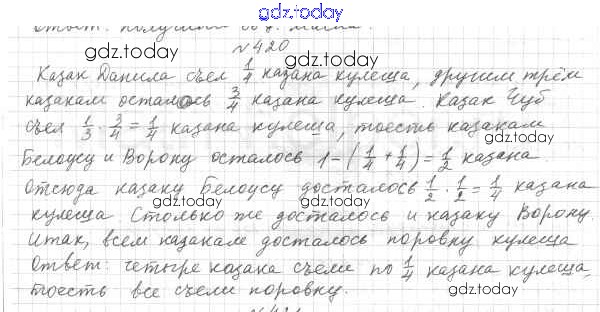 gdz.today
Ответ: получили
gdz.today
№420
gdz.today
Казак Данила съел 1/4 казана кулеша, другим трём
казакам осталось 3/4 казана кулеша. Казак Чуб
съел 1/3 · 3/4 = 1/4 казана кулеша, тоесть казакам
gdz.today
gdz.today
Белоусу и Ворону осталось 1-(1/4+1/4)=1/2 казана.
Отсюда казаку Белоусу досталось 1/2 · 1/2 = 1/4 казана
кулеша. Столько же досталось и казаку Ворону.
gdz.today
Итак, всем казакам досталось поровну кулеша
Ответ: четыре казака съели по 1/4 казана кулеша,
тоесть все съели поровну.
gdz.today
gdz.today